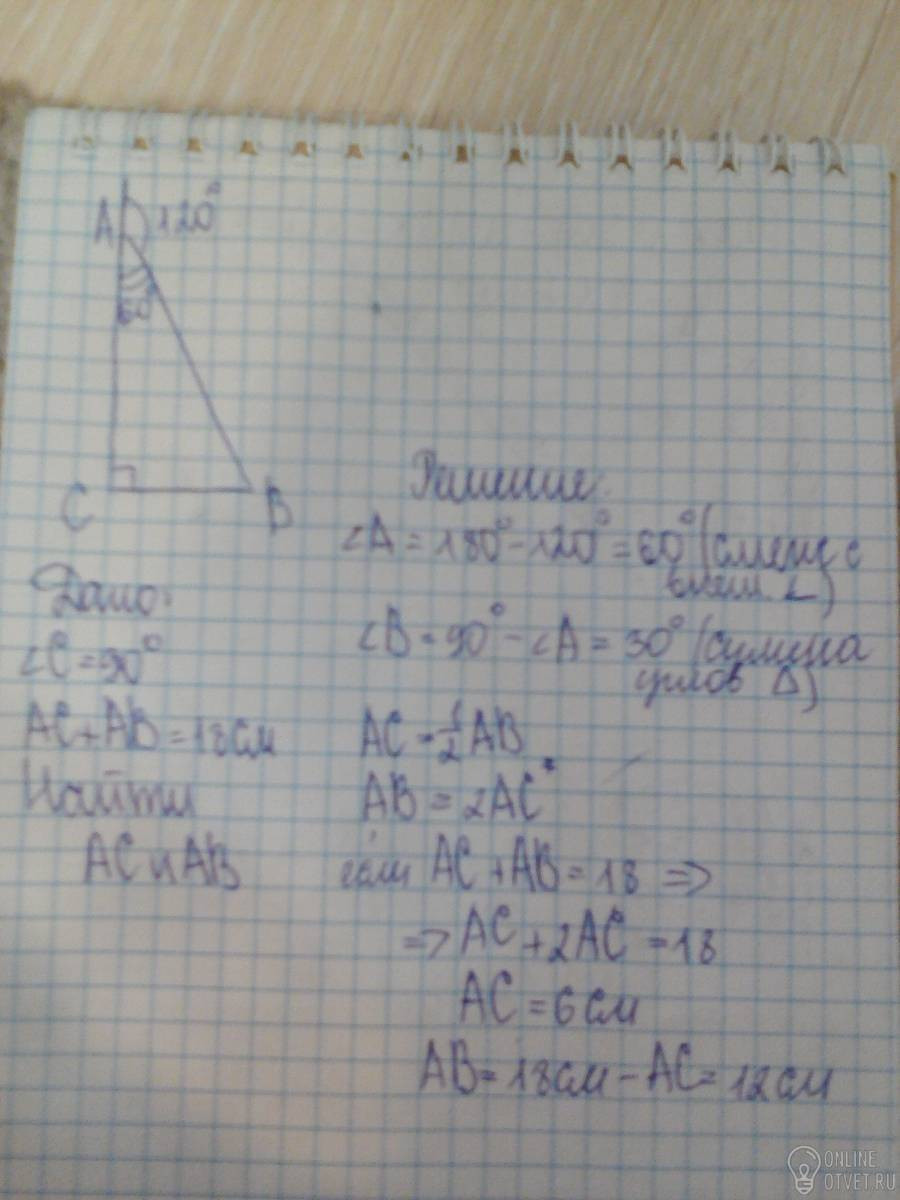 A 120°
60°
C
B
Решение.
∠A = 180° - 120° = 60° (смеж с
внеш. ∠)
Дано:
∠B = 90° - ∠A = 30° (сумма
углов Δ)
∠C = 90°
AC + AB = 18 см
AC = 1/2 AB
Найти
AB = 2AC
AC и AB
если AC + AB = 18 =>
=> AC + 2AC = 18
AC = 6 см
AB = 18 см - AC = 12 см
ONLINE
OTVET.RU